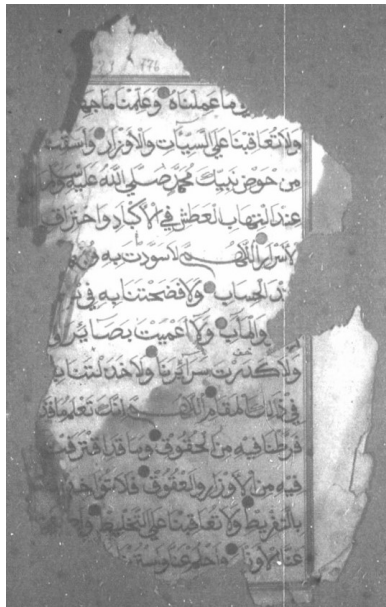 ما عملناه وعلمنا ما
ولا تعاقبنا على السيئات والأوزار واسقنا
من حوض نبيك محمد صلى الله عليه وسلم
عند التهاب العطش في الأكباد واحتراف
لأسرار اللهم لا سودت به
الحساب ولا فضحتنا به في
والمآب ولا أعميت بصائرنا
ولا كدرت سرائرنا ولا خذلتنا
في ذلك المقام اللهم إنك تعلم ما
فرطنا فيه من الحقوق وما قد اقترفت
فيه من الأوزار والعقوق فلا تؤاخذ
بالتفريط ولا تعاقبنا على التخليط
عنا الأوزار واحلم عنا